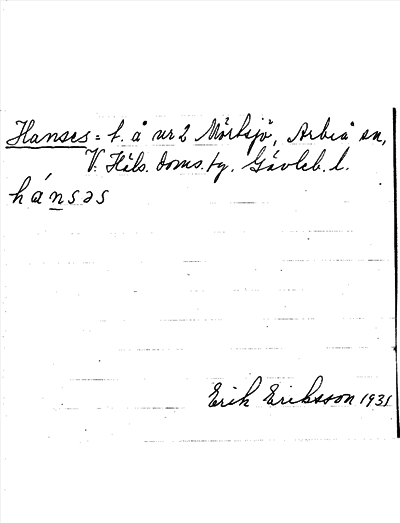 Hanses = t. å nr 2 Mörtsjö, Arbrå sn,
V. Häls. doms. tg. Gävleb. l.
hánsəs
Erik Eriksson 1931